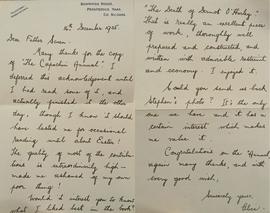 16th December 1955.
Dear Father Senan
Many thanks for the copy
of "The Capuchin Annual". I
deferred this acknowledgment until
I had read some of it, and
actually finished it the other
day, though I know I should
have tasted it for occasional
reading until about Easter!
The quality of most of the contribu-
tions is extraordinarily high &
made me ashamed of my own
poor thing!
Would it interest you to know
what I liked best in the book?
"The Death of Dermot O'Hurley."
That is really an excellent piece
of work, thoroughly well
prepared and constructed, and
written with admirable restraint
and economy. I enjoyed it.
Could you send me back
Stephen's photo? It's the only
one we have and it has a
certain interest which makes
me value it.
Congratulations on the "Annual",
again many thanks, and with
every good wish,
Sincerely yours,